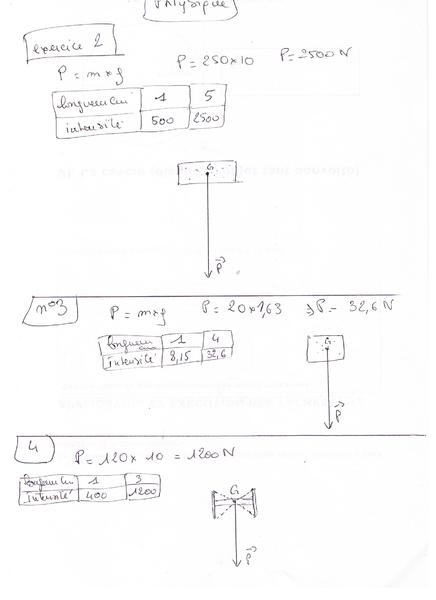 Physique
exercice 2
P = m × g P = 250×10 P = 2500 N
longueur cm 1 5
intensité 500 2500
G
P
n°3 P = m×g P = 20×1,63 => P = 32,6 N
longueur cm 1 4
intensité 8,15 32,6
G
P
4
P = 120 × 10 = 1200N
longueur cm 1 3
Intensité 400 1200
G
P